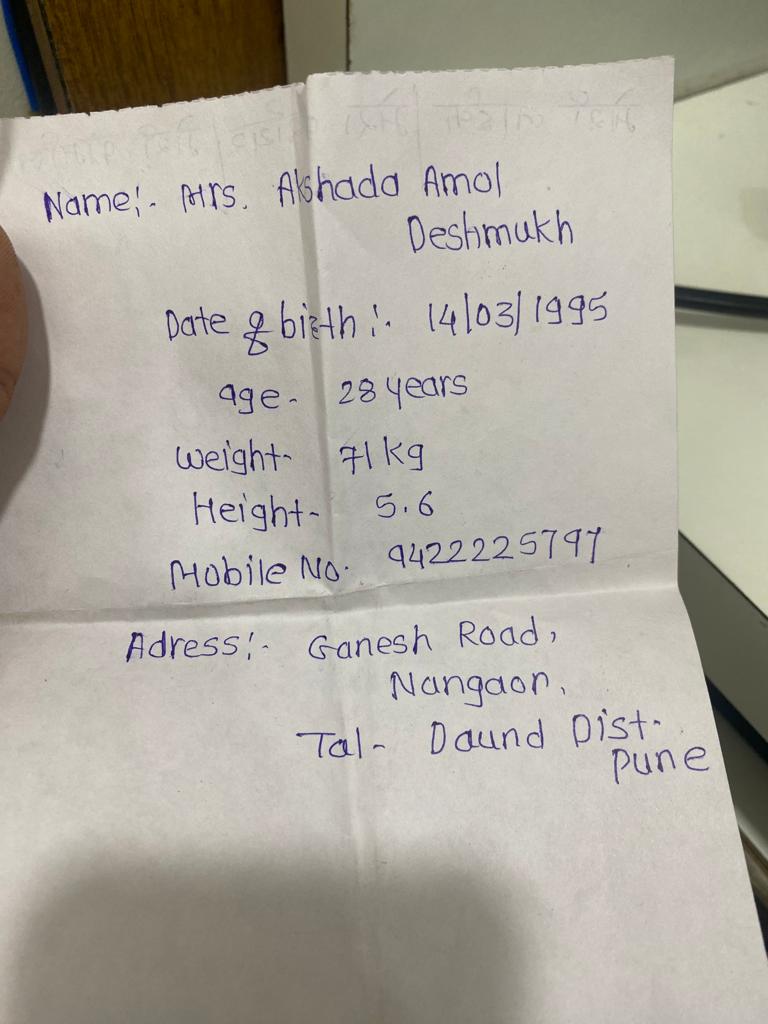 Name:- Mrs. Akshada Amol
Deshmukh
Date of birth :- 14/03/1995
age- 28 years
weight- 71 kg
Height- 5.6
Mobile No. 9422225797
Adress:- Ganesh Road,
Nangaon,
Tal- Daund Dist-
Pune